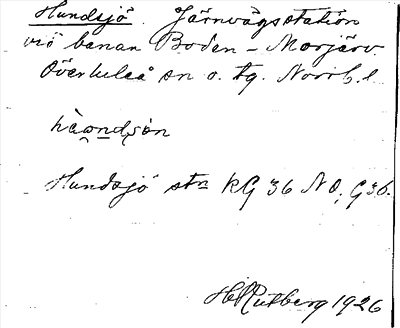 Hundsjö. Järnvägsstation
vid banan Boden – Morjärv
Överluleå sn o. tg. Norrb. l.
hàundsjön
Hundsjö stn RG 36 NO; G36.
H Rutberg 1926